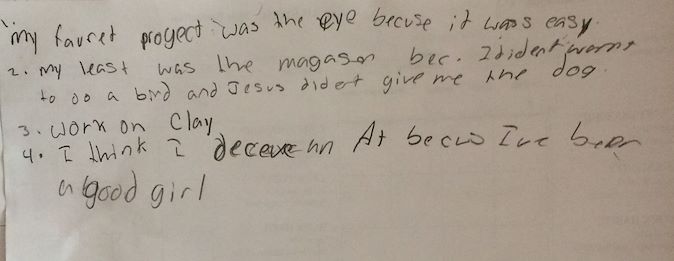 1. my favret progect was the eye becuse it wass easy.
2. my least was the magason bec. I dident wornt
to do a bird and Jesus didet give me the dog.
3. work on Clay
4. I think I deceve an At becus I've been
a good girl